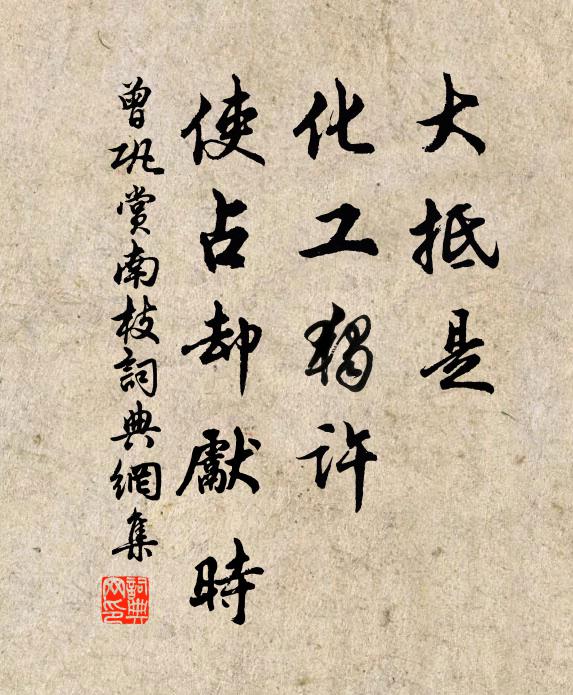 大抵是
化工獨許
使占却獻時
曾巩賞南枝詞典網集
詞典網印